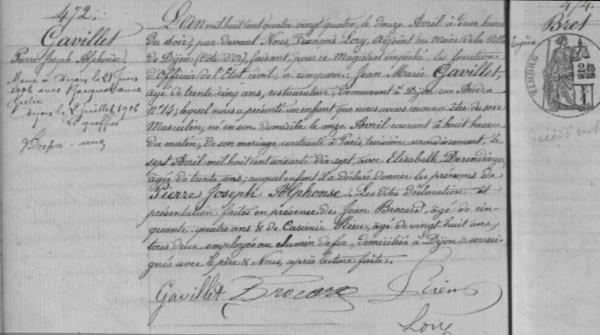 472.
Gavillet
Pierre Joseph Alphonse
Marié à Dijon le 25 Juin
1906 avec
Dijon le 2 juillet 1906
Le greffier
L'An mil huit cent quatre vingt quatre, le douze Avril à deux heures
du soir, par devant Nous, François Lory, adjoint au Maire de la Ville
de Dijon (Côte d'Or), faisant, pour ce Magistrat empêché, les fonctions
d'Officier de l'État civil, a comparu: Jean Marie Gavillet,
âgé de trente cinq ans, restaurateur, demeurant à Dijon rue
N° 14; lequel nous a présenté un enfant que nous avons reconnu être du sexe
Masculin, né en son domicile le onze Avril courant à huit heures
du matin, de son mariage contracté à Paris, troisième arrondissement, le
sept Avril mil huit cent soixante dix sept, avec Elisabeth
âgée de trente ans; auquel enfant il a déclaré donner les prénoms de
Pierre Joseph Alphonse. Les dites déclaration et
présentation faites en présence de Jean Brocard, âgé de cin
quante quatre ans & de Casimir âgé de vingt huit ans,
tous deux employés au chemin de fer, domiciliés à Dijon & soussi
gnés avec le père & Nous, après lecture faite.
Gavillet Brocard
Lory
474.
Bret